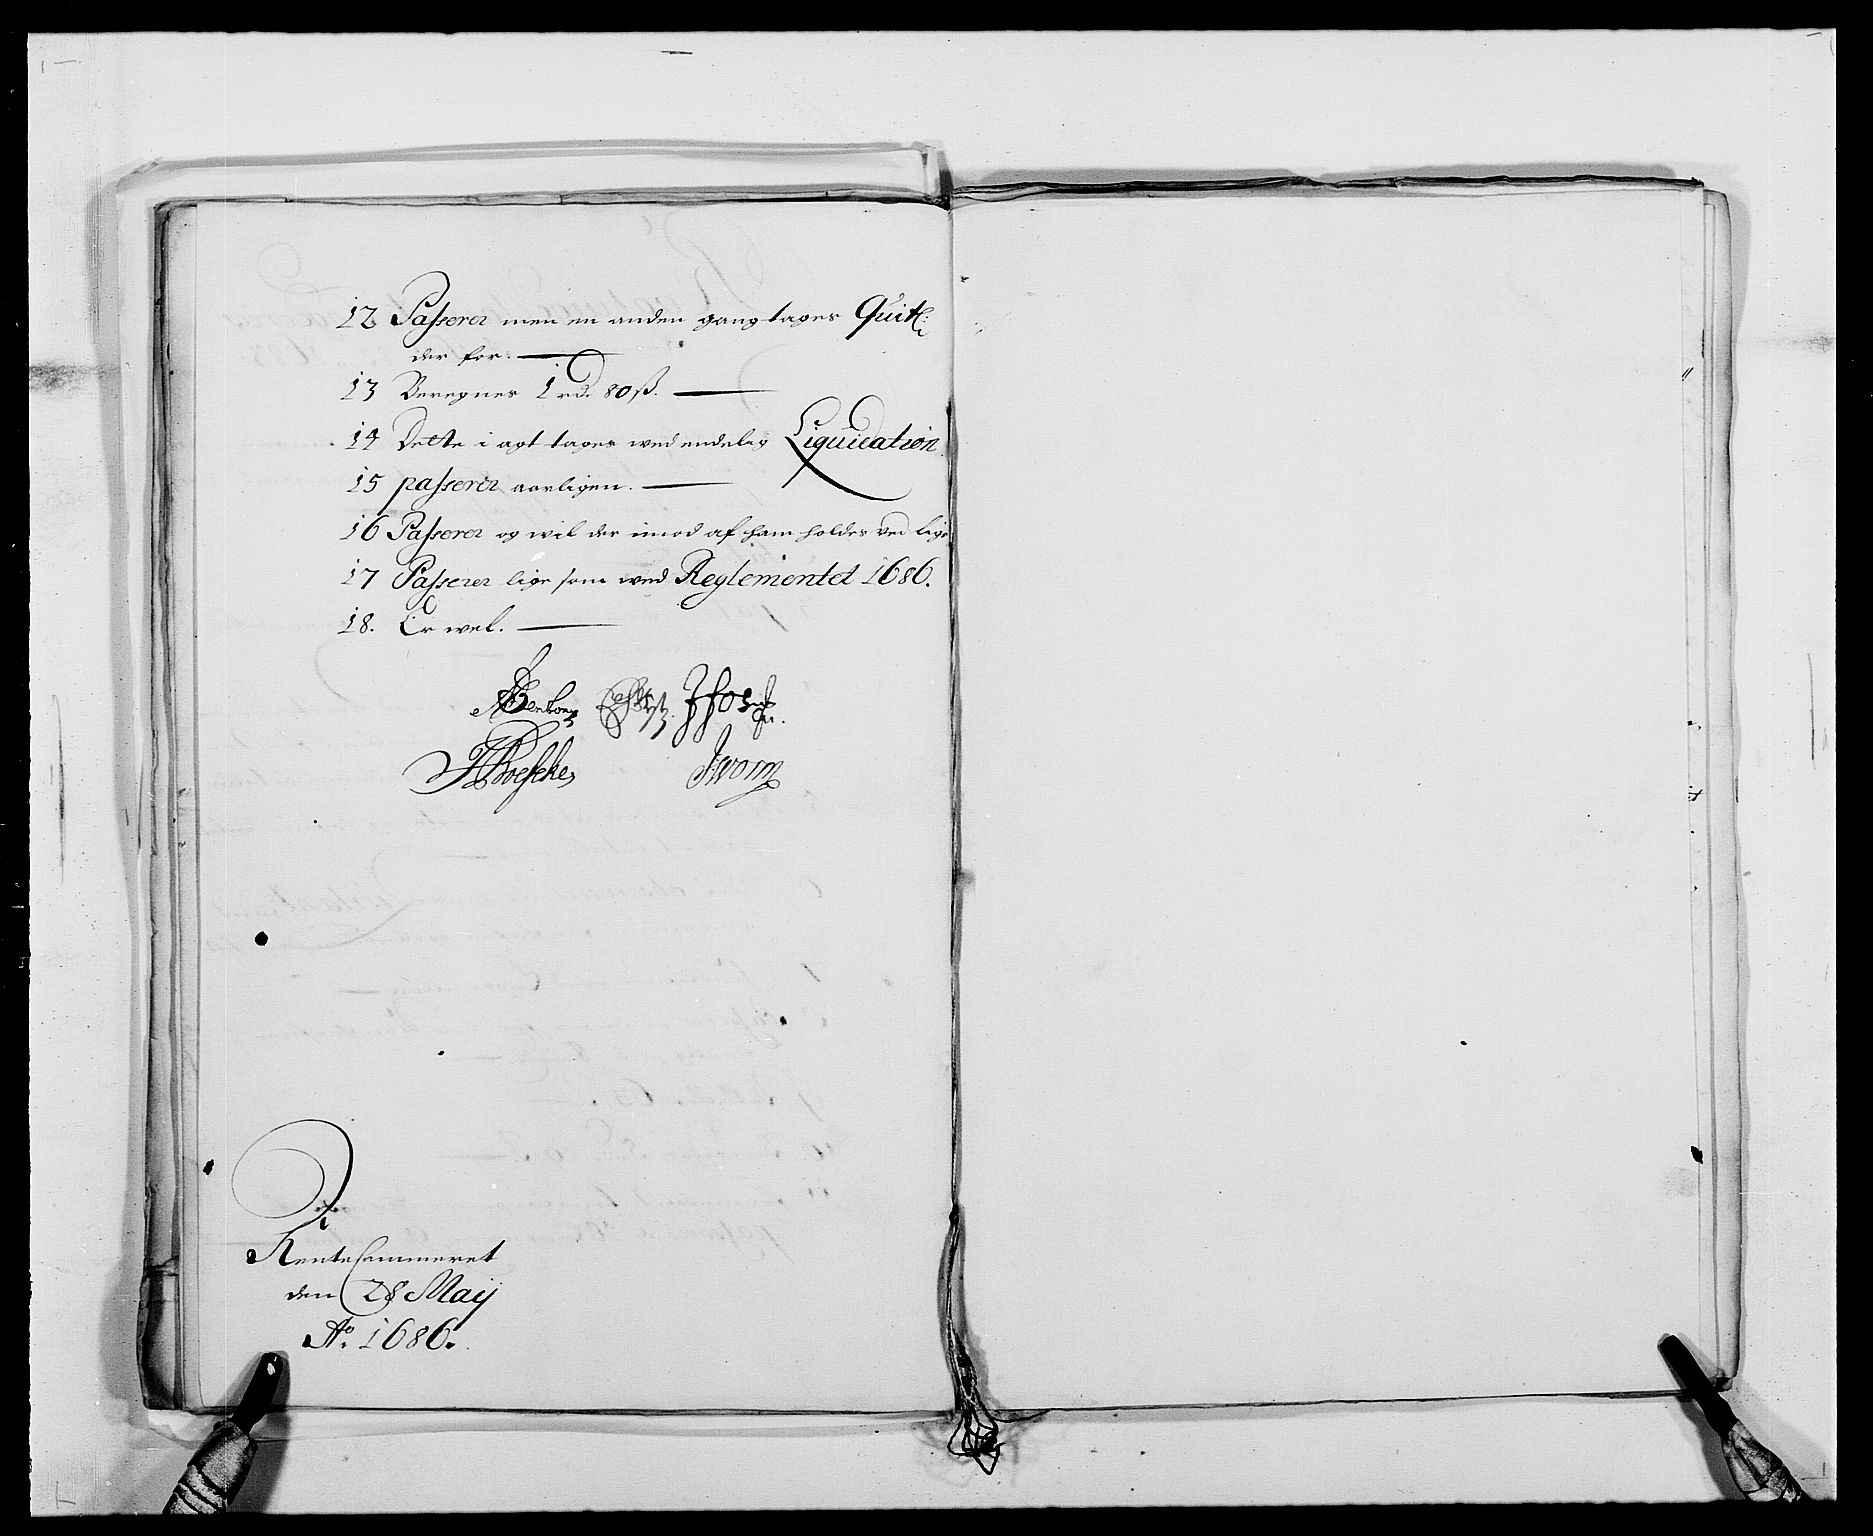 12 Passerer men en anden gang tages Quitt:
der for.
13 Beregnes 1 rd. 80 ß.
14 Dette i agt tages wed endelig Liquidation.
15 passerer aarligen.
16 Passerer og wil der imod af ham holdes ved lige
17 Passerer lige som wed Reglementet 1686.
18. Er wel.
JWorm
RenteCammeret
den 28 Maij
Ao. 1686.